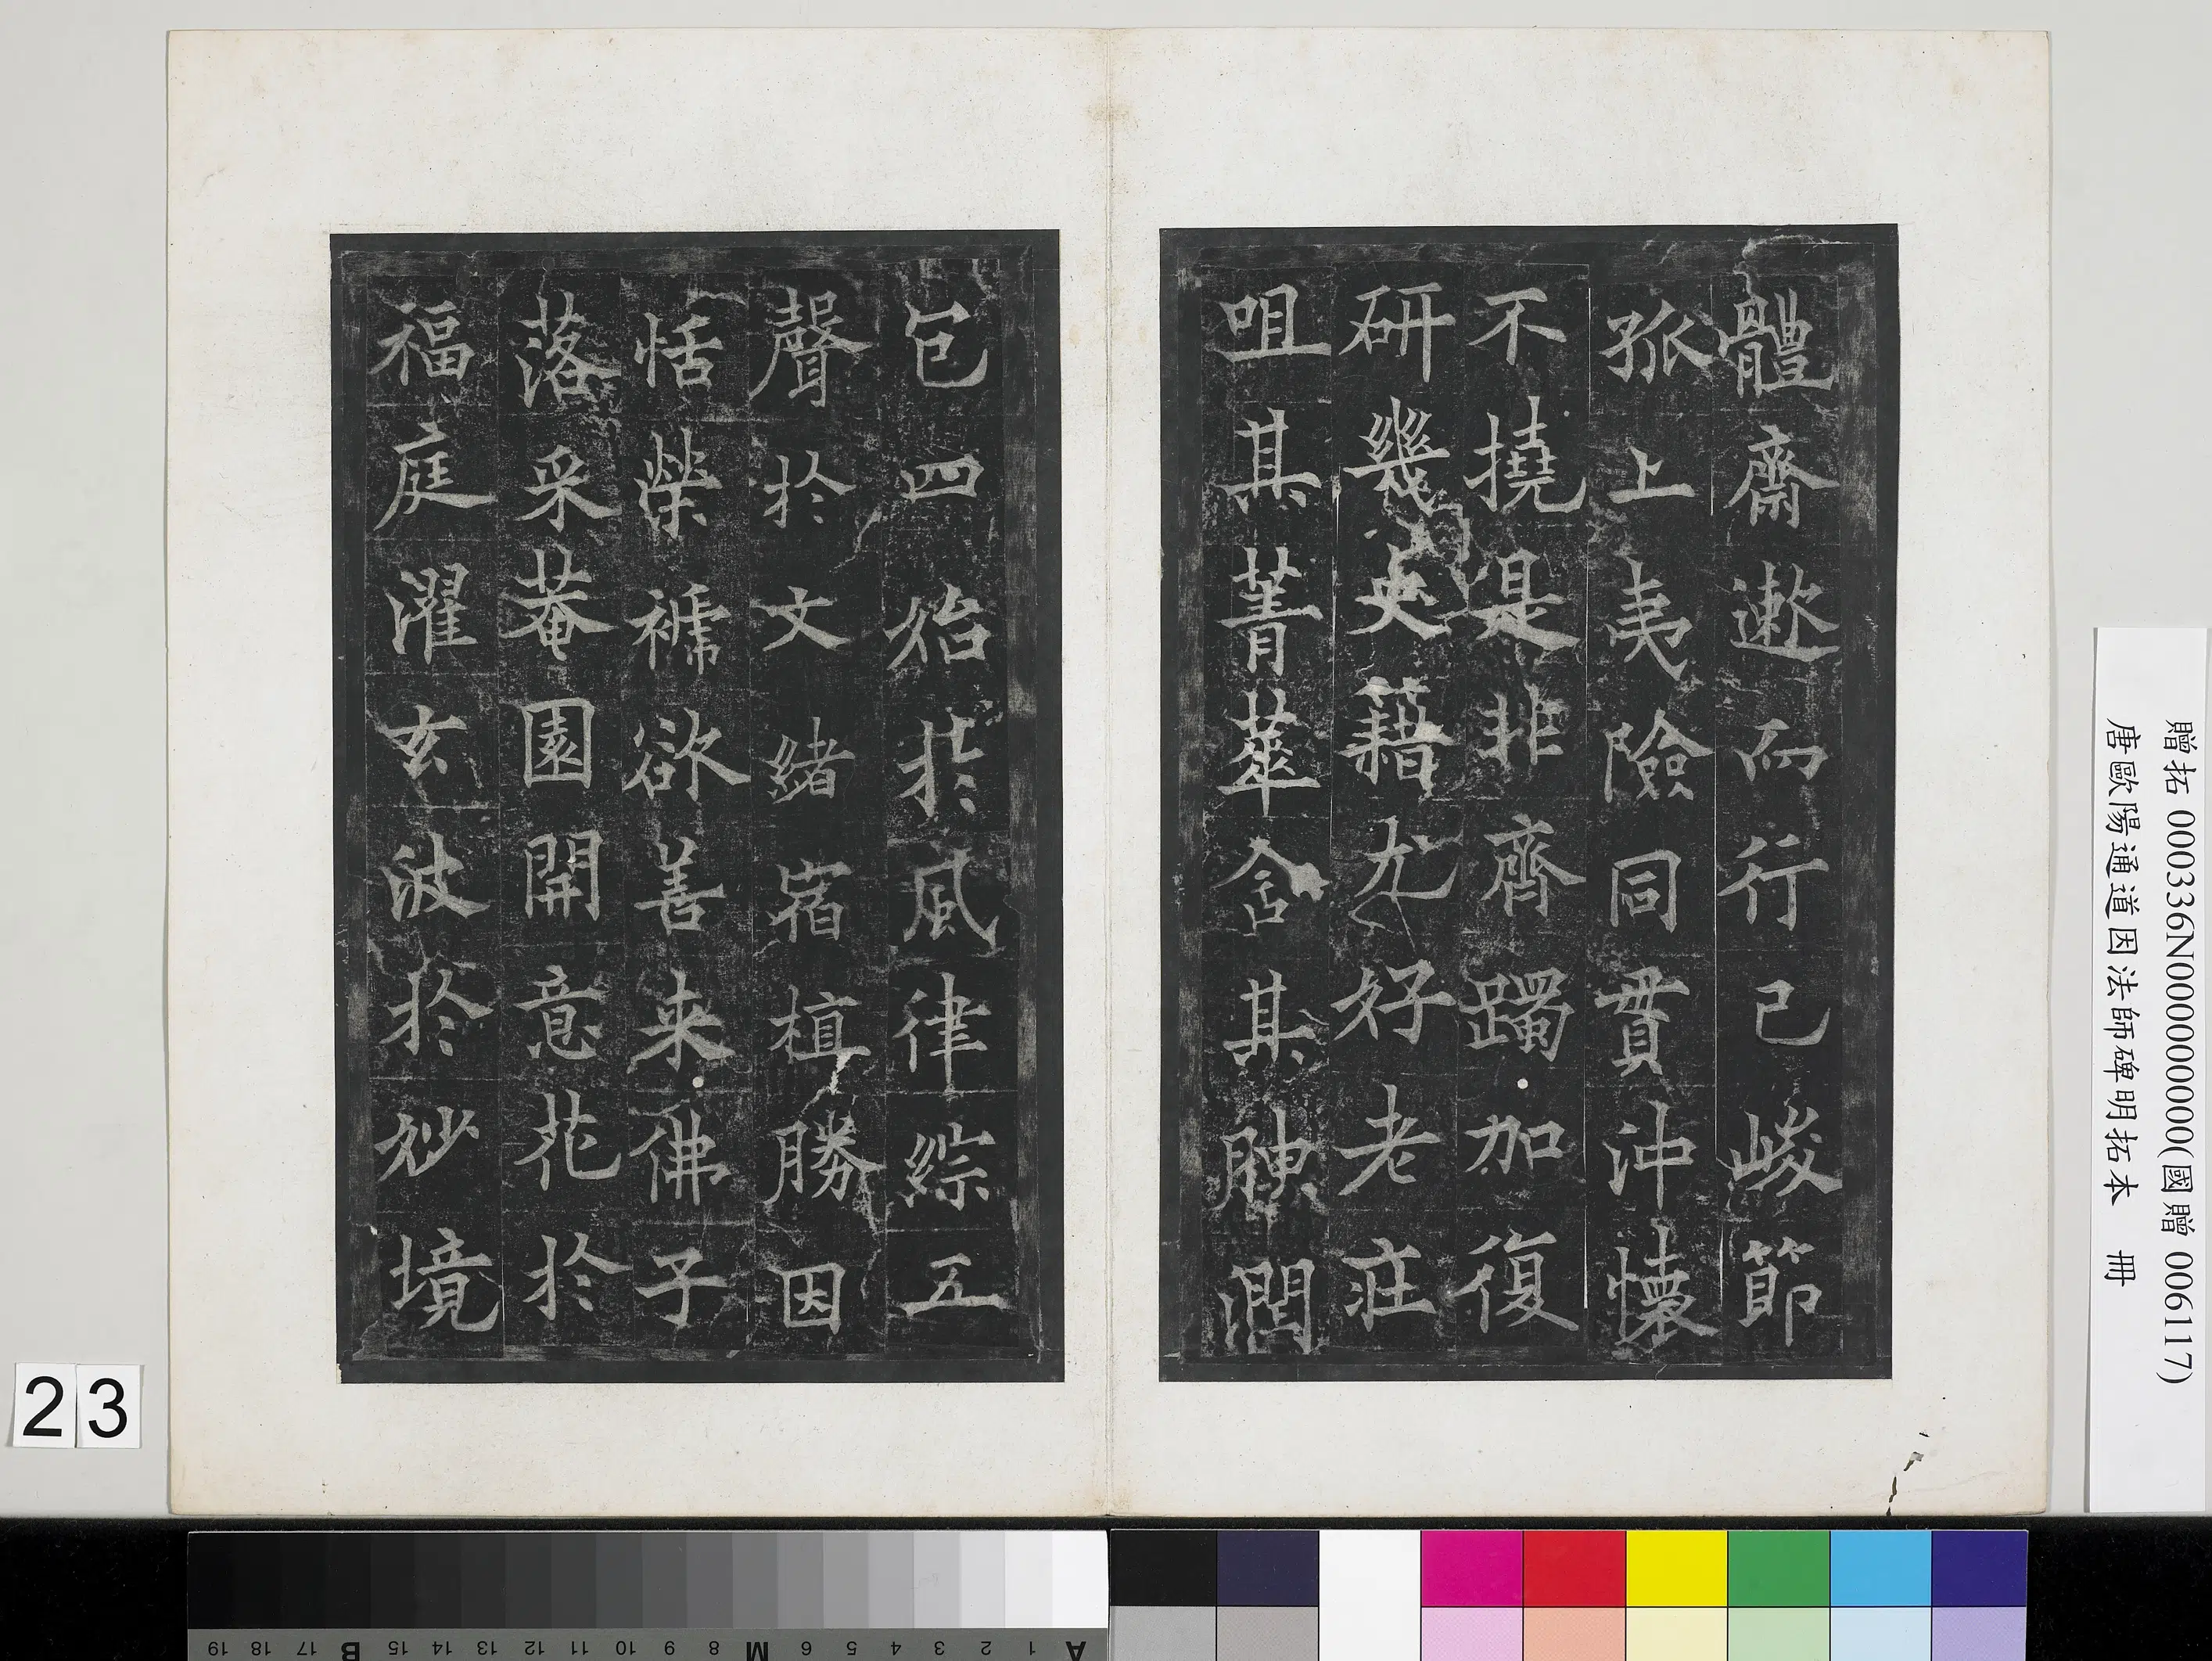 體齋遬而行已峻節
孤上夷險同貫沖懷
不撓是非齊躅加復
研幾史籍尤好老莊
咀其菁華含其腴潤
包四始於風律綜五
聲於文緒宿植勝因
恬榮褫欲善来佛子
落采菴園開意花於
福庭濯玄波於妙境
贈拓 000336N000000000(國贈 006117)
唐歐陽通道因法師碑明拓本 冊
23
A 1 2 3 4 5 6 M 8 9 10 11 12 13 14 15 B 17 18 19